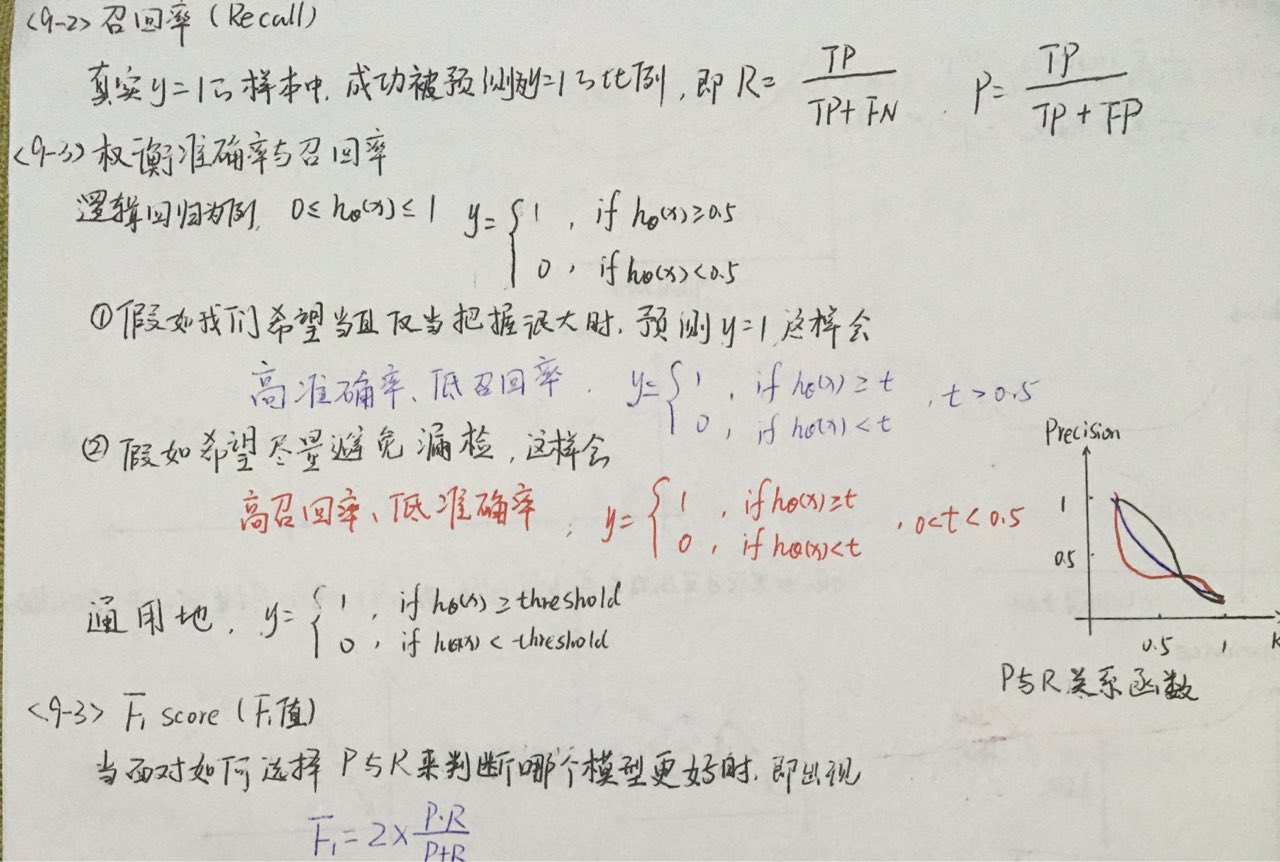 <9-2> 召回率 (Recall)
真实y=1的样本中,成功被预测为y=1的比例,即 R= TP/(TP+FN) , P= TP/(TP+FP)
<9-3> 权衡准确率与召回率
逻辑回归为例, 0≤hθ(x)≤1 y={1, if hθ(x)≥0.5
0, if hθ(x)<0.5
①假如我们希望当且仅当把握很大时,预测y=1,这样会
高准确率、低召回率. y={1, if hθ(x)≥t
0, if hθ(x)<t , t>0.5
②假如希望尽量避免漏检,这样会
高召回率、低准确率; y={1, if hθ(x)≥t
0, if hθ(x)<t , 0<t<0.5
通用地, y={1, if hθ(x)≥threshold
0, if hθ(x)<threshold
Precision
1
0.5
0.5 1
P与R关系函数
<9-3> F₁ score (F₁值)
当面对如何选择 P与R来判断哪个模型更好时,即出现
F₁=2× P·R/(P+R)